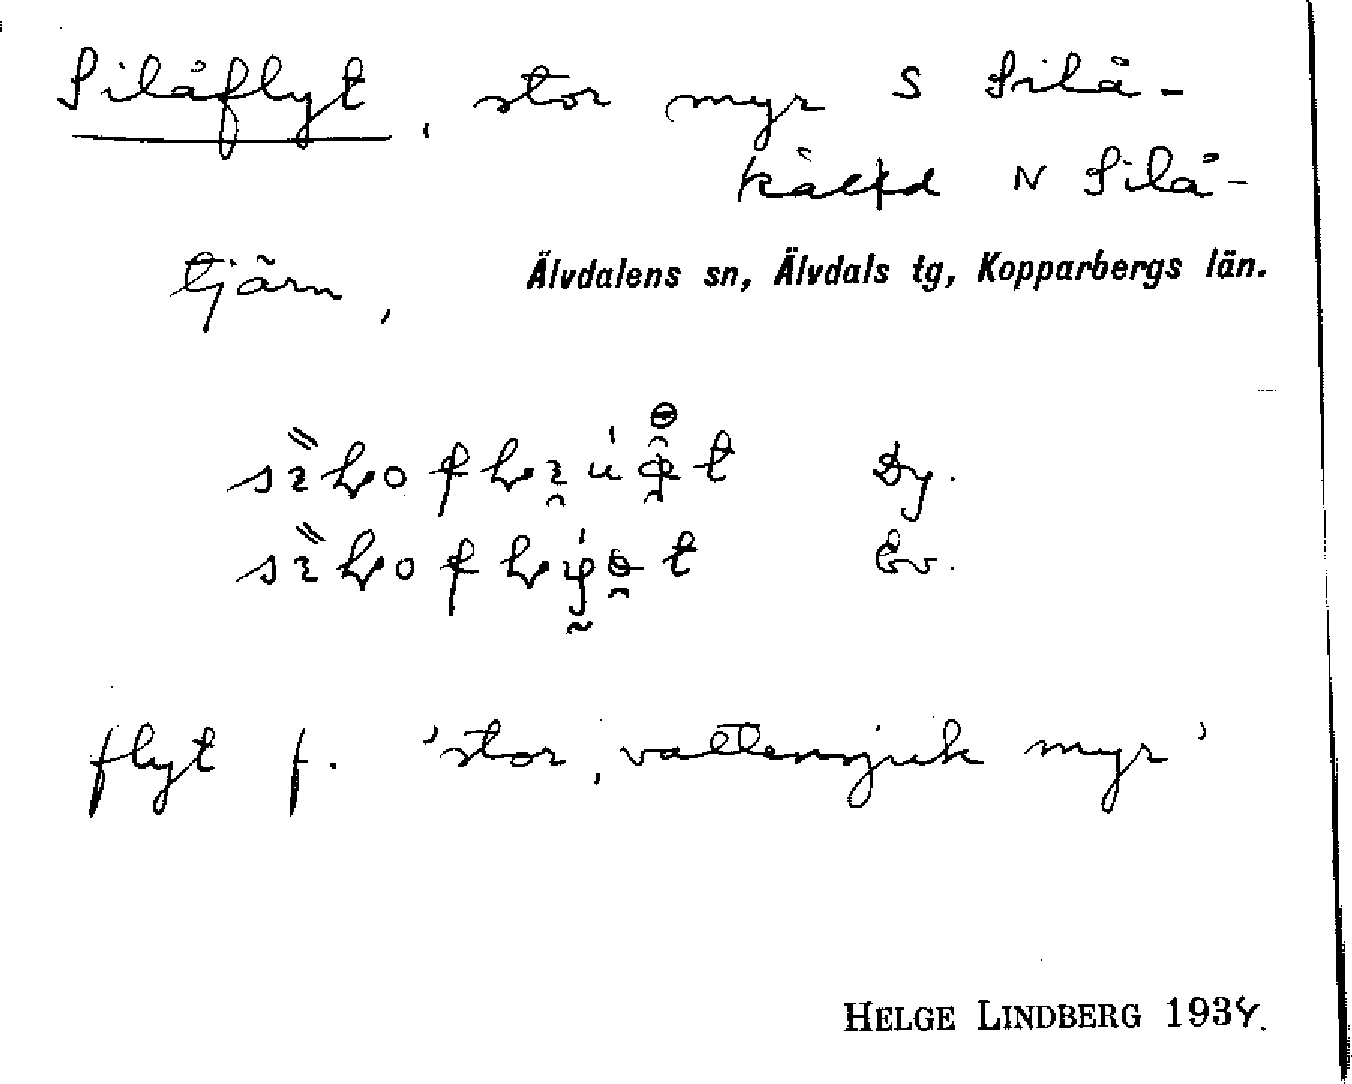 Silåflyt, stor myr S Silå-
N Silå-
tjärn, Älvdalens sn, Älvdals tg, Kopparbergs län.
Dy.
Ev.
flyt f. 'stor, vattensjuk myr'
HELGE LINDBERG 1934.